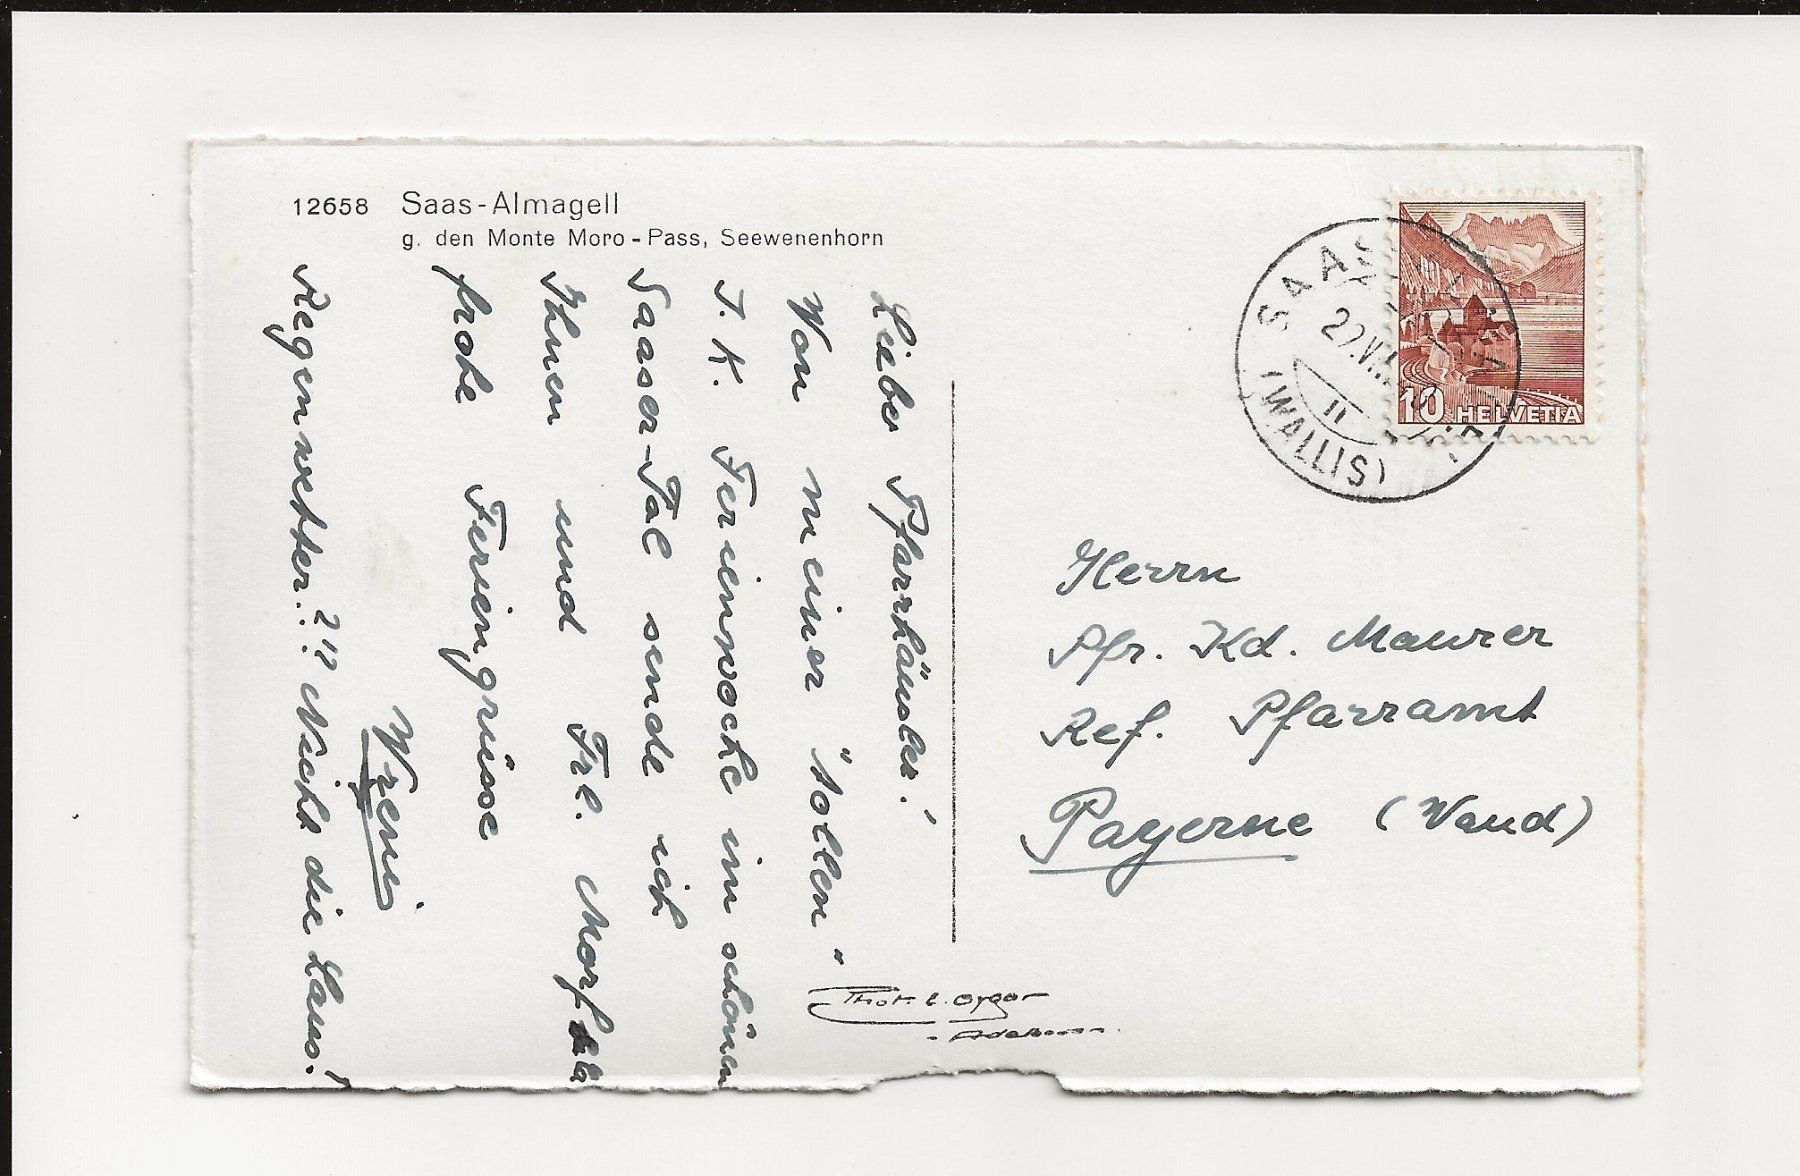 12658 Saas-Almagell
g. den Monte Moro-Pass, Seewenenhorn
Liebes Pfarrhäusler!
Von meiner "tollen"
J. K. Ferienwoche im schönen
Saaser-Tal sende ich
Ihnen und Frl. Morf
frohe Feriengrüsse
Vreni
Regenwetter!!?!? Nicht die Laus!
SAAS
22.VII
(WALLIS)
10 HELVETIA
Herrn
Pfr. Kd. Maurer
Ref. Pfarramt
Payerne (Vaud)
Phot.